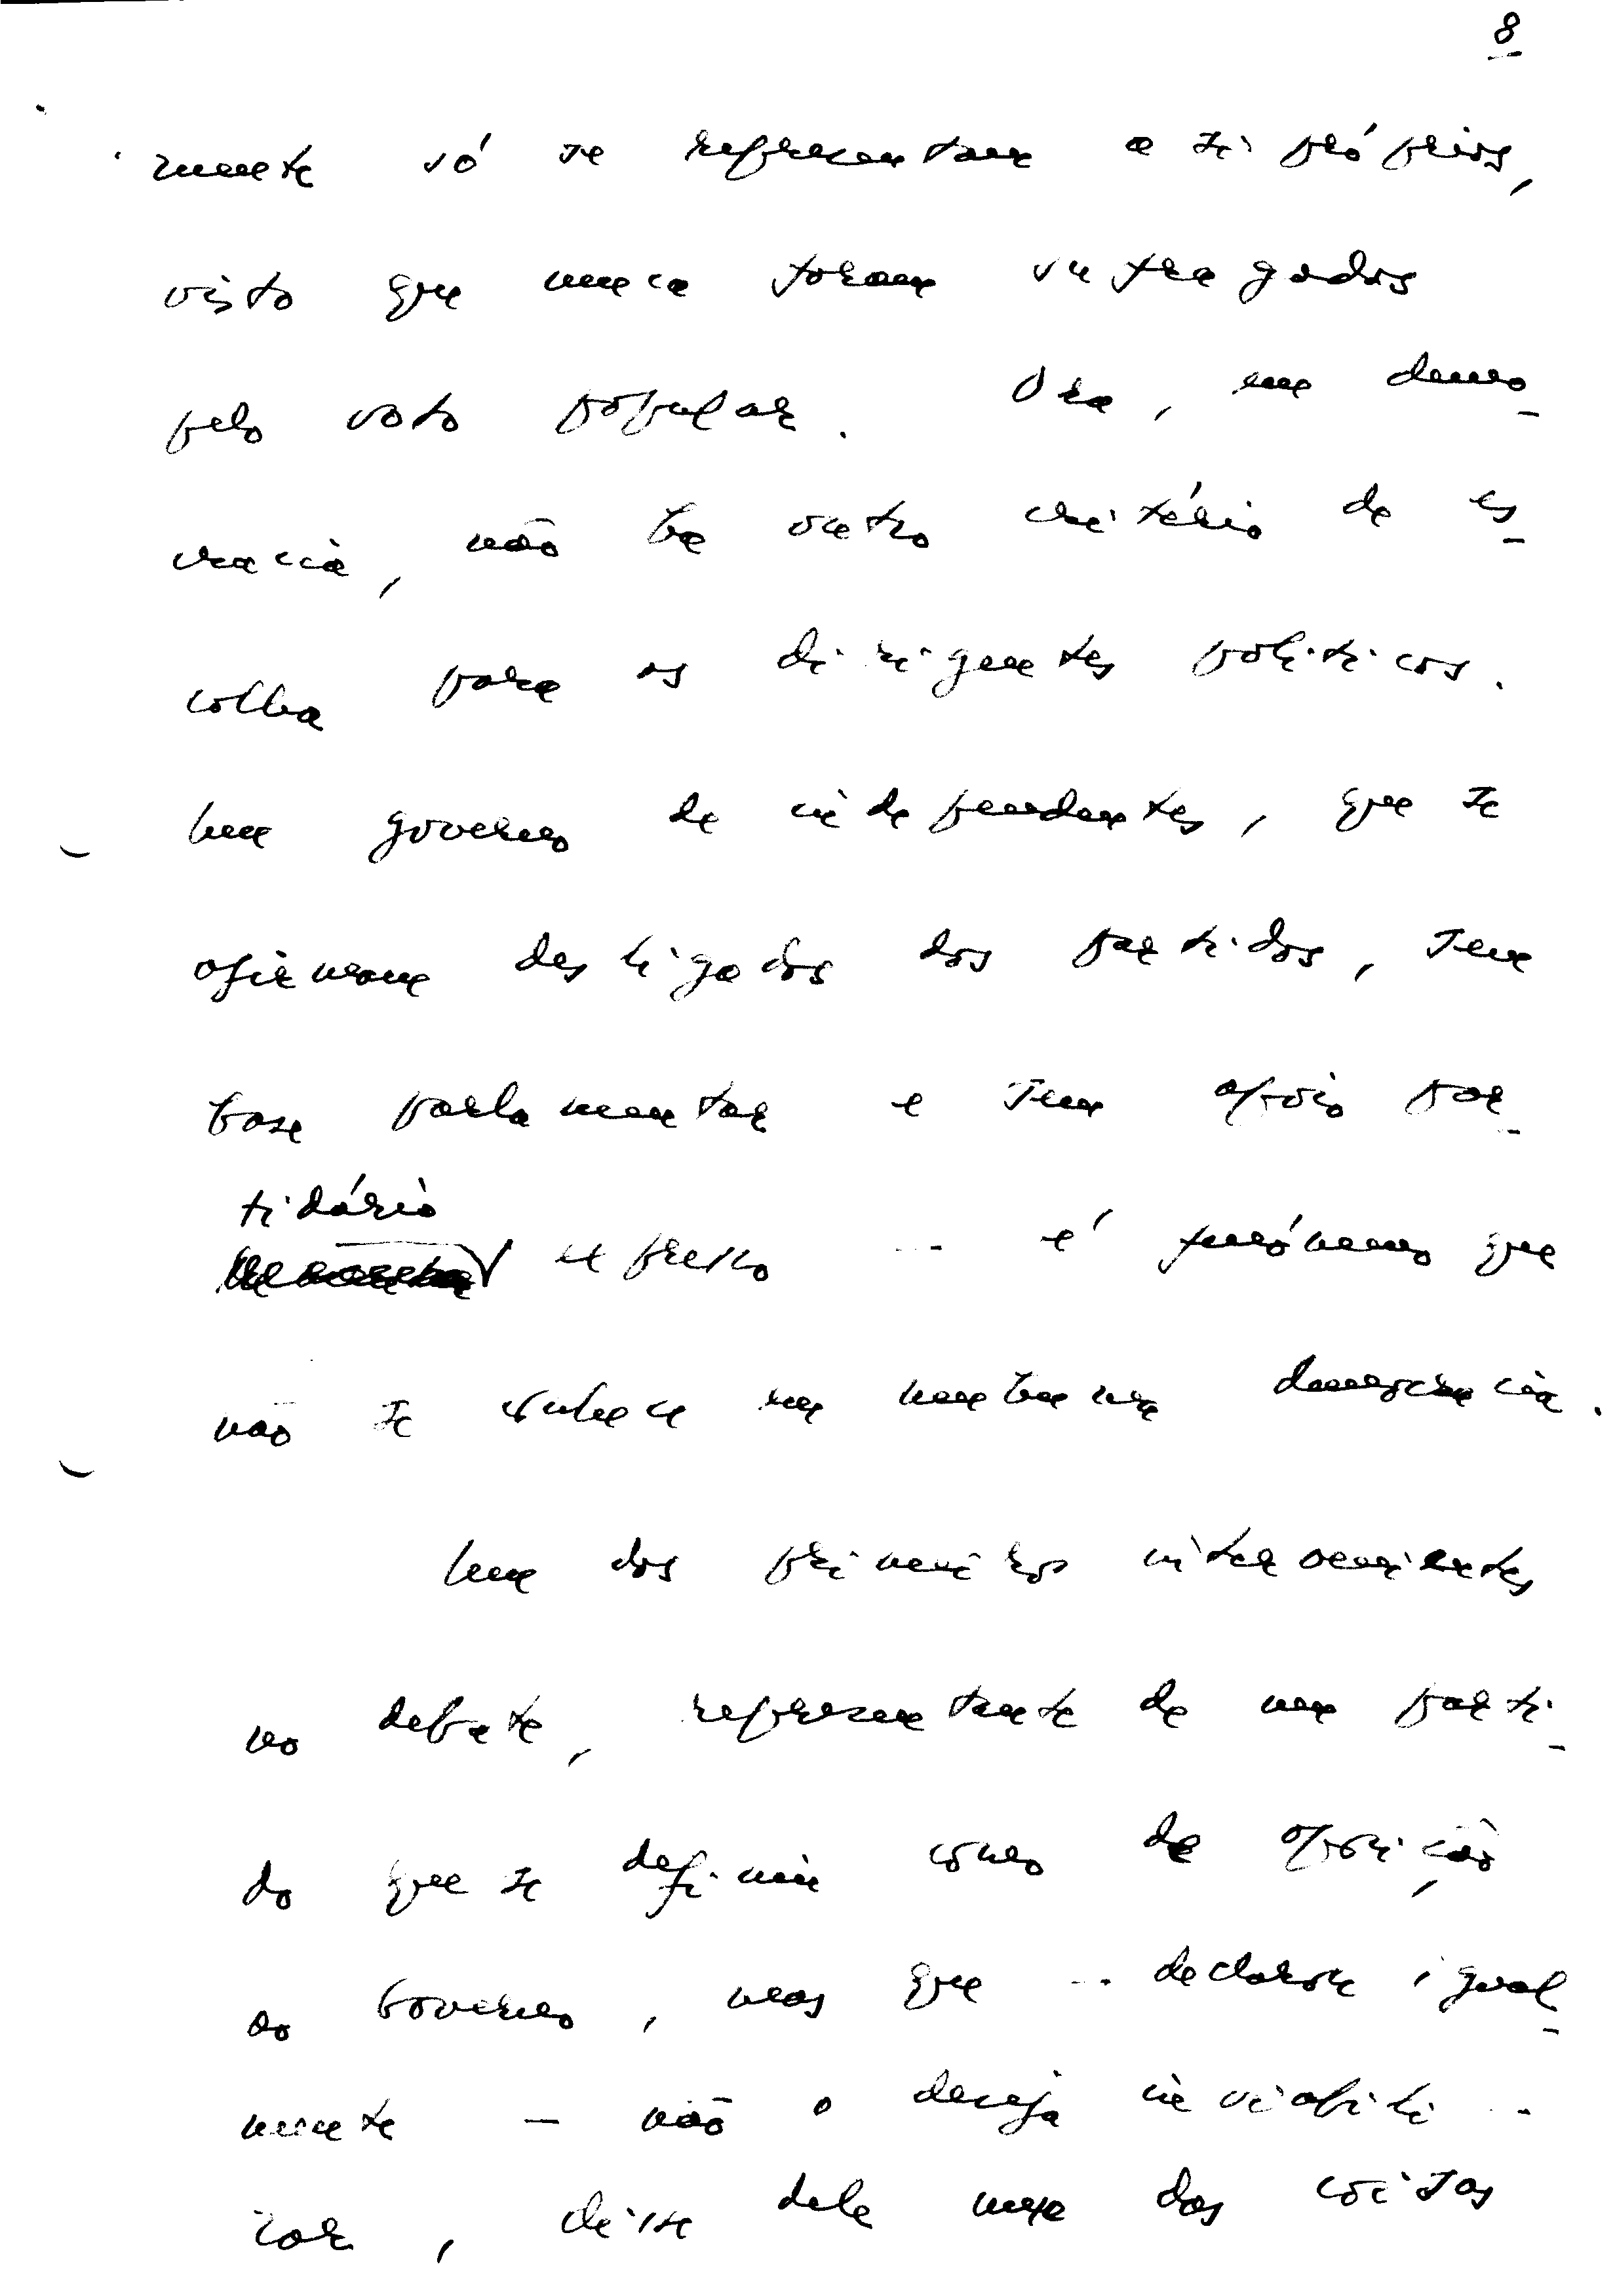 8
mente só se representam a si próprios,
visto que nunca foram sufragados
pelo voto popular. Ora, em demo-
cracia, não há outro critério de es-
colha para os dirigentes políticos.
Um governo de independentes, que se
afirmam desligados dos partidos, sem
base parlamentar e sem apoio par-
tidário
expresso - é fenómeno que
não se conhece em nenhuma democracia.
Um dos primeiros intervenientes
no debate, representante de um parti-
do que se define como de oposição
ao Governo, mas que - declarou igual-
mente - não o deseja inviabili-
zar, disse dele uma das coisas